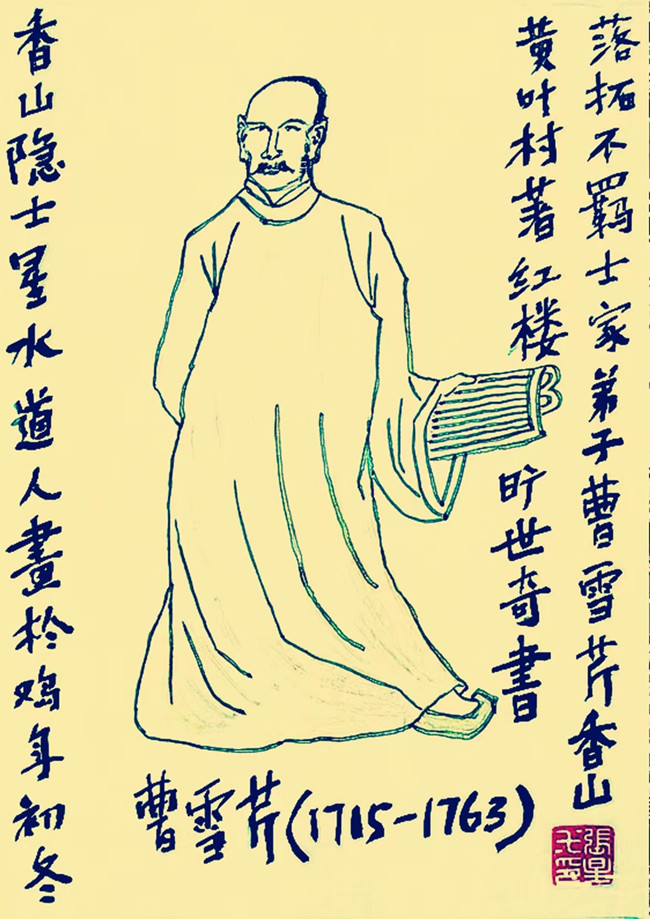 落拓不羁士家弟子曹雪芹香山
黄叶村著红楼旷世奇書
香山隐士星水道人畫於鸡年初冬
曹雪芹(1715-1763)